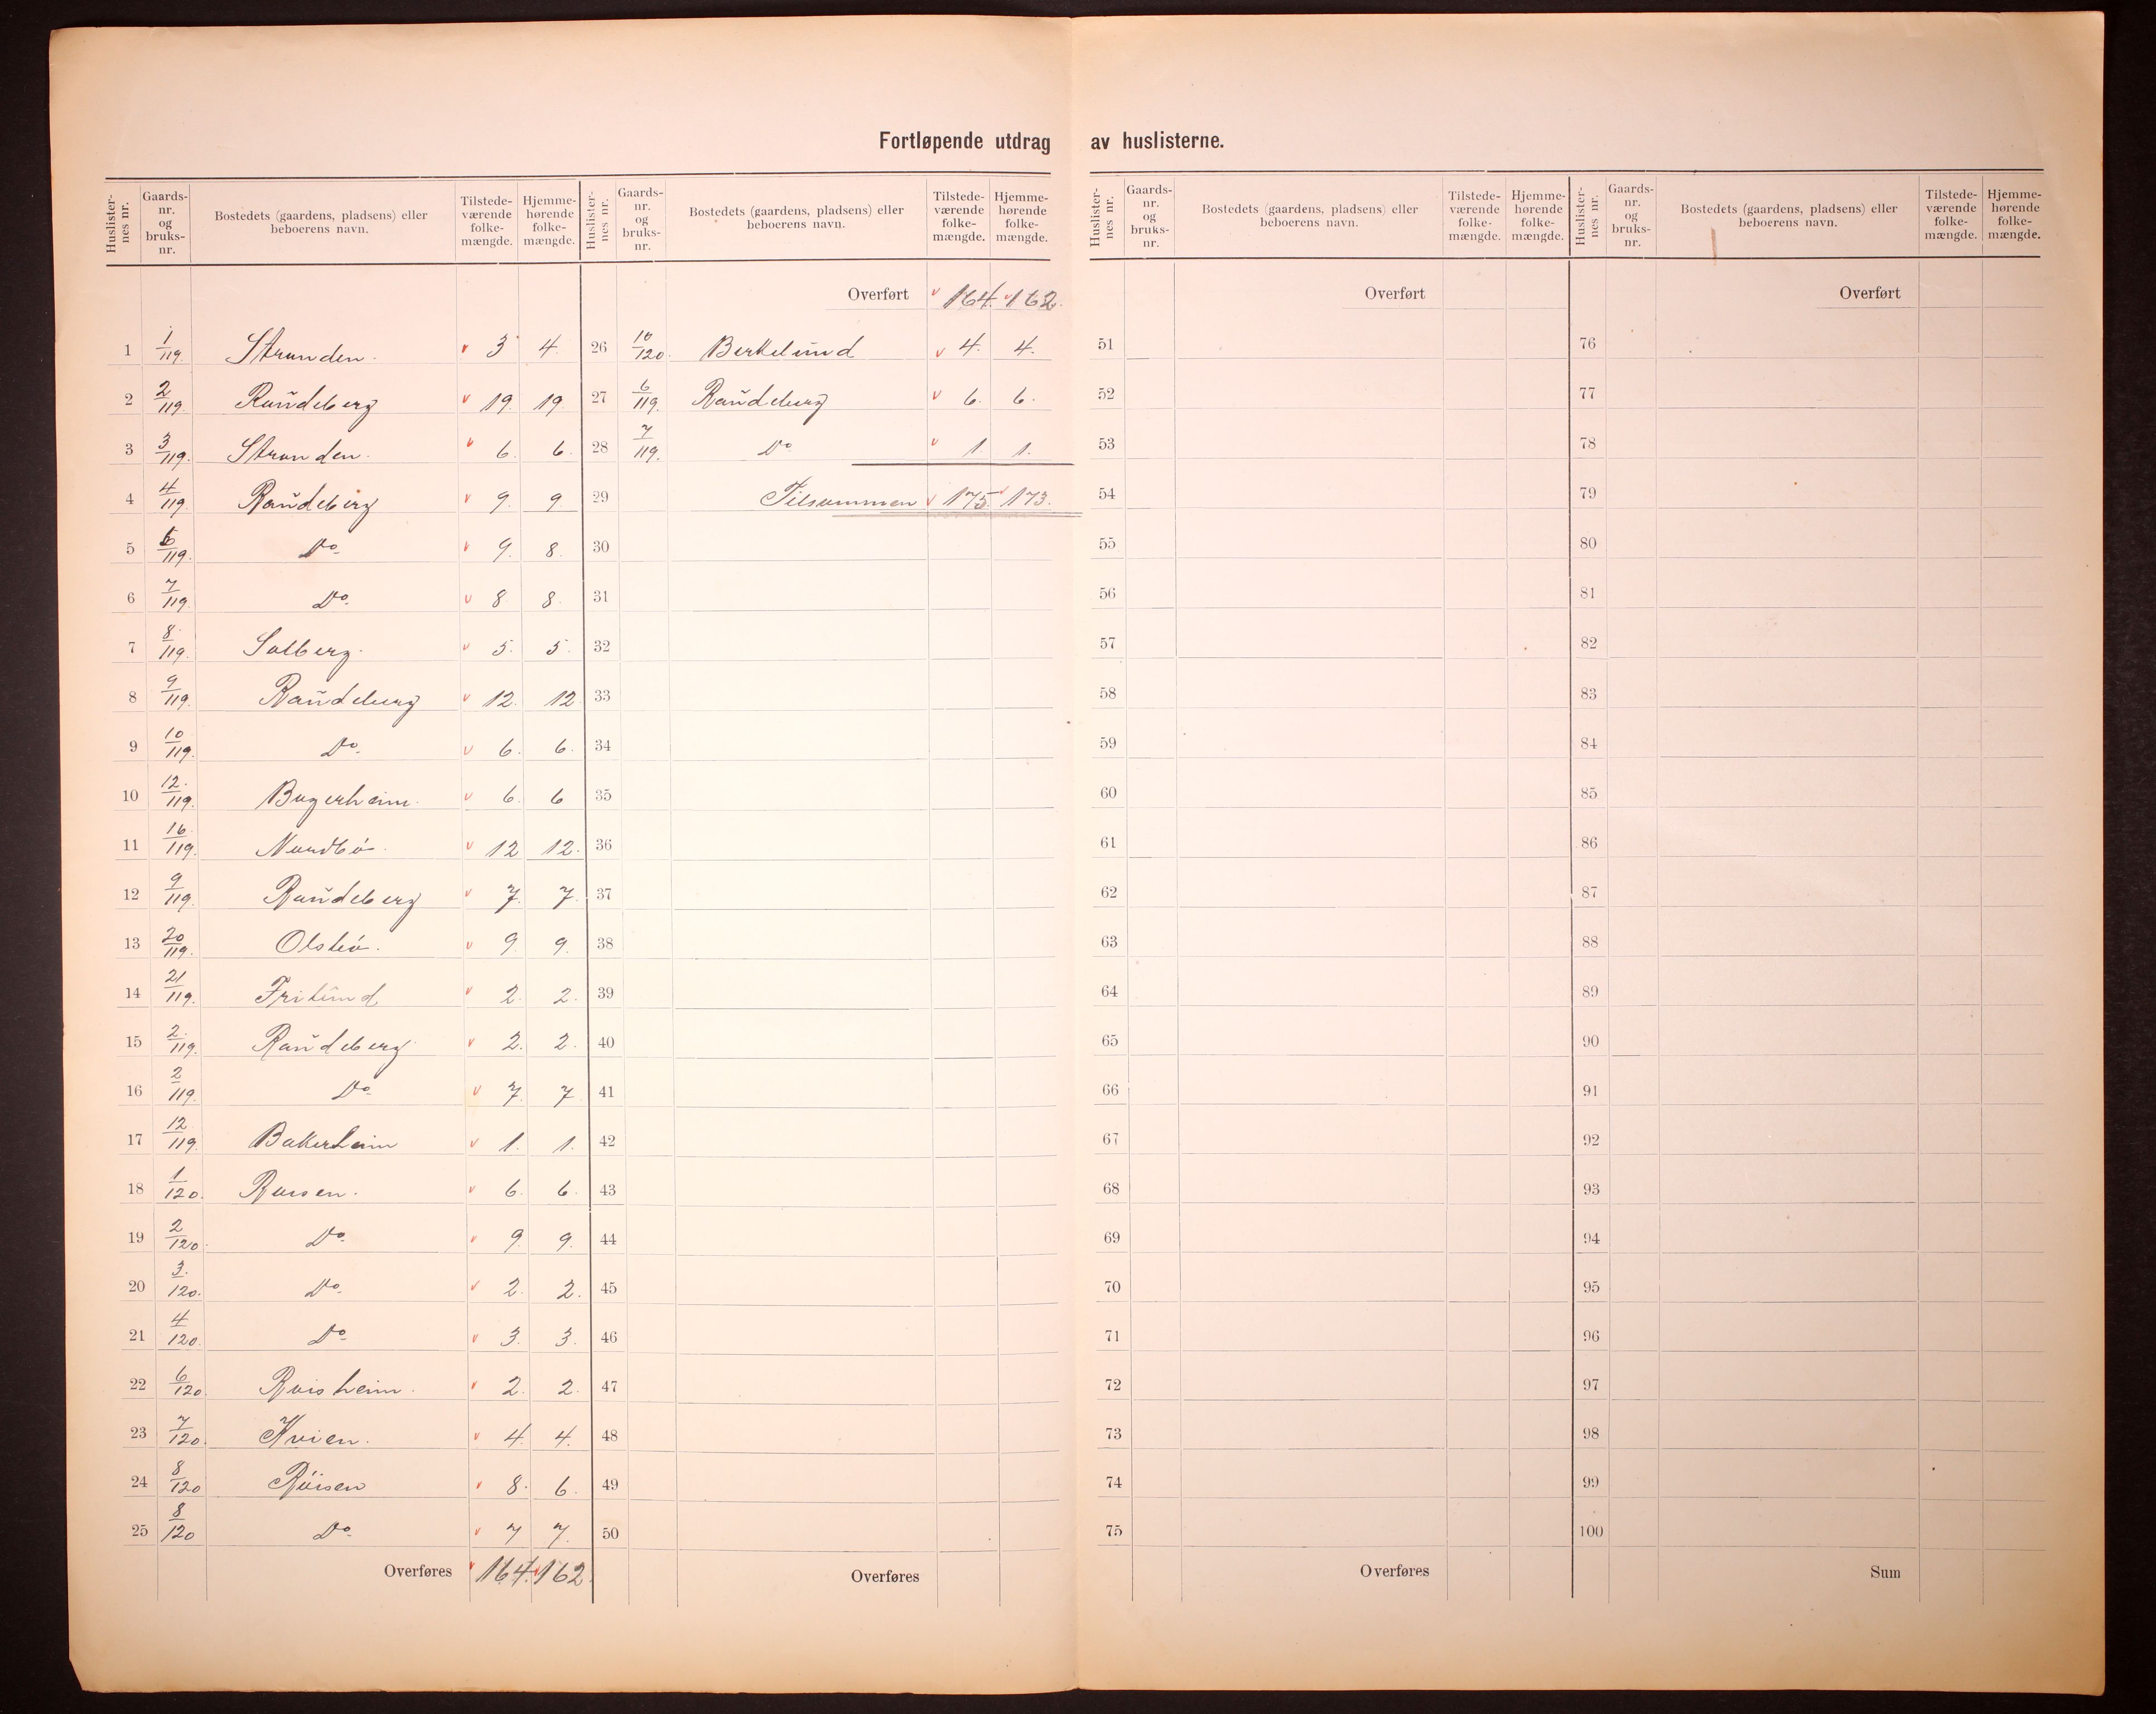 Fortløpende utdrag av huslisterne.
Huslister-nes nr. | Gaards-nr. og bruks-nr. | Bostedets (gaardens, pladsens) eller beboerens navn. | Tilstede-værende folke-mængde. | Hjemme-hørende folke-mængde.
1 1/119. Stranden. v 3 4
2 2/119. Raŭdeberg v 19. 19.
3 3/119. Stranden. v 6. 6.
4 4/119 Raŭdeberg v 9. 9.
5 6/119. Do v 9. 8.
6 7/119. Do. v 8 8.
7 8/119. Solberg. v 5. 5.
8 9/119. Raŭdeberg v 12. 12
9 10/119. Do. v 6. 6.
10 12./119. v 6. 6
11 16/119. Nordbó. v 12 12.
12 9/119. Raŭdeberg v 7. 7.
13 20/119. Olsbó. v 9. 9.
14 21/119. Frilŭnd v 2. 2.
15 2./119. Raŭdeberg v 2. 2.
16 2/119. Do. v 7. 7
17 12/119. Bakerheim v 1. 1.
18 1/120. v 6. 6.
19 2/120. Do. v 9. 9.
20 3./120. Do. v 2. 2.
21 4/120. Do v 3. 3.
22 6/120. Róisheim. v 2. 2.
23 7/120. Kvien. v 4. 4.
24 8/120 Róisen v 8. 6.
25 8/120 Do. v 7 7.
Overføres v 164. v 162.
Huslister-nes nr. | Gaards-nr. og bruks-nr. | Bostedets (gaardens, pladsens) eller beboerens navn. | Tilstede-værende folke-mængde. | Hjemme-hørende folke-mængde.
Overført v 164. v 162.
26 10/120. Birkelŭnd v 4. 4.
27 6/119. Raŭdeberg v 6. 6.
28 7/119. Do. v 1. 1.
29 Tilsammen v 175. v 173.
30
31
32
33
34
35
36
37
38
39
40
41
42
43
44
45
46
47
48
49
50
Overføres
Huslister-nes nr. | Gaards-nr. og bruks-nr. | Bostedets (gaardens, pladsens) eller beboerens navn. | Tilstede-værende folke-mængde. | Hjemme-hørende folke-mængde.
Overført
51
52
53
54
55
56
57
58
59
60
61
62
63
64
65
66
67
68
69
70
71
72
73
74
75
Overføres
Huslister-nes nr. | Gaards-nr. og bruks-nr. | Bostedets (gaardens, pladsens) eller beboerens navn. | Tilstede-værende folke-mængde. | Hjemme-hørende folke-mængde.
Overført
76
77
78
79
80
81
82
83
84
85
86
87
88
89
90
91
92
93
94
95
96
97
98
99
100
Sum